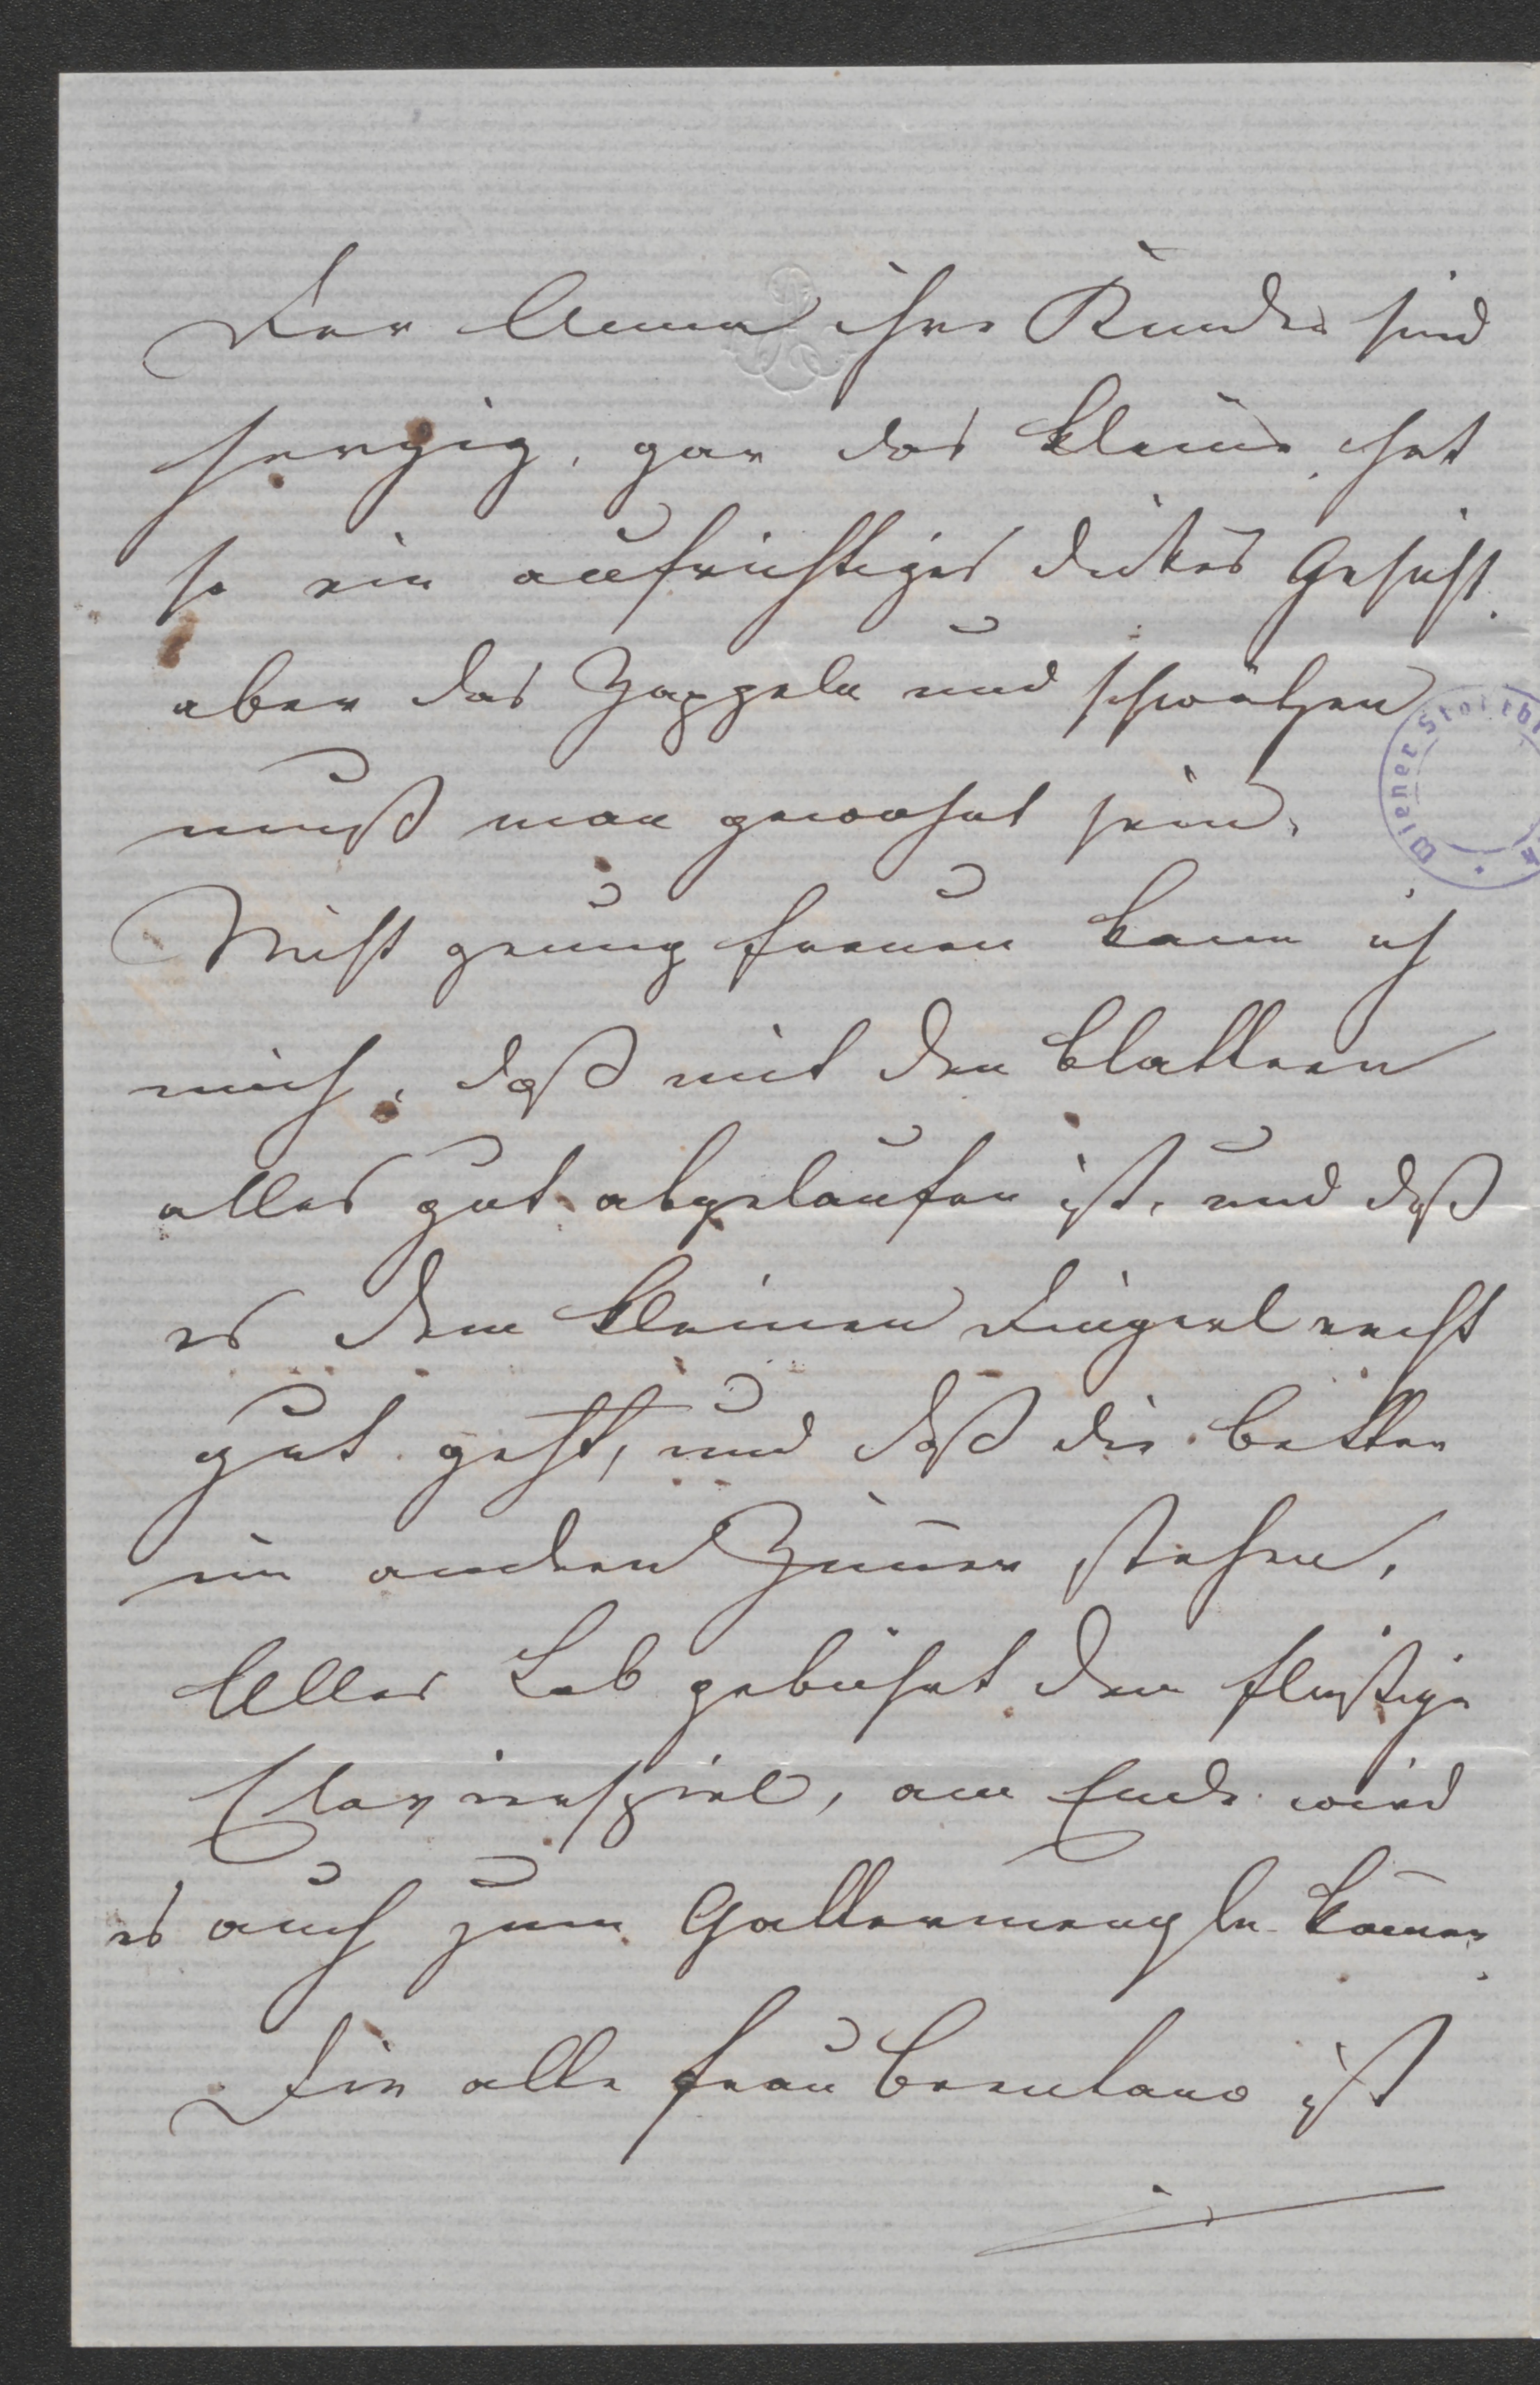 Der Anna ihre Kinder sind
herzig, gar das kleine hat
so ein aufrichtiges dickes Gesicht.
aber das Zappeln und schwätzen
muß man gewohnt sein.
Nicht genug freuen kann ich
mich, daß mit den Blattern
alles gut abgelaufen ist, und daß
es dem kleinen Dingerl recht
gut geht, und daß die Betten
im andern Zim̄er stehen.
Alles Lob gebührt dem fleißigen
Clavierspiel, am Ende wird
es auch zum kom̄en.
Die alte Frau Brentano ist
Wiener